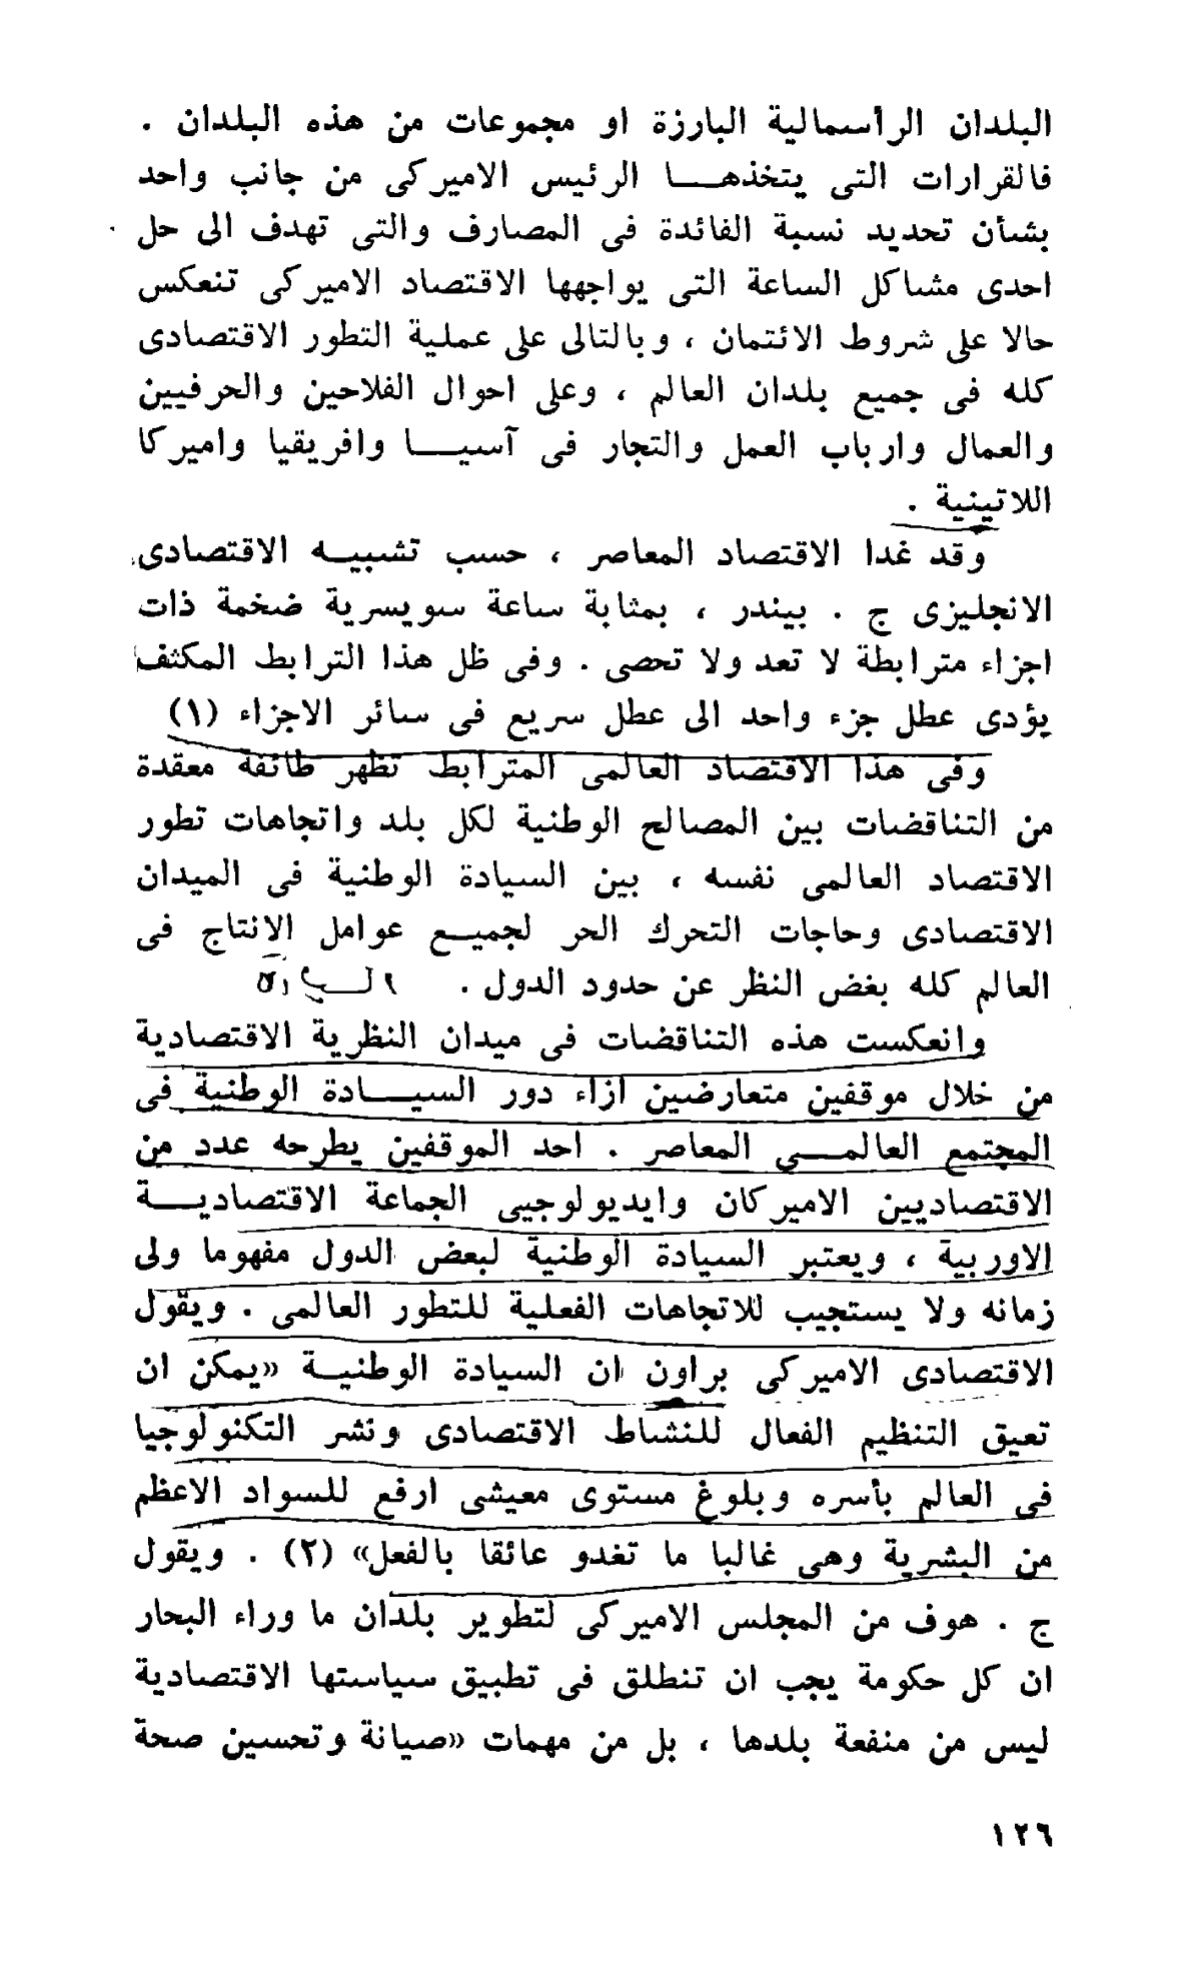 البلدان الرأسمالية البارزة او مجموعات من هذه البلدان .
فالقرارات التى يتخذهـــا الرئيس الاميركى من جانب واحد
بشأن تحديد نسبة الفائدة فى المصارف والتى تهدف الى حل
احدى مشاكل الساعة التى يواجهها الاقتصاد الاميركى تنعكس
حالا على شروط الائتمان ، وبالتالى على عملية التطور الاقتصادى
كله فى جميع بلدان العالم ، وعلى احوال الفلاحين والحرفيين
والعمال وارباب العمل والتجار فى آسيـــا وافريقيا واميركا
اللاتينية .
وقد غدا الاقتصاد المعاصر ، حسب تشبيـه الاقتصادى
الانجليزى ج . بيندر ، بمثابة ساعة سويسرية ضخمة ذات
اجزاء مترابطة لا تعد ولا تحصى . وفى ظل هذا الترابط المكثف
يؤدى عطل جزء واحد الى عطل سريع فى سائر الاجزاء (١)
وفى هذا الاقتصاد العالمى المترابط تظهر طائفة معقدة
من التناقضات بين المصالح الوطنية لكل بلد واتجاهات تطور
الاقتصاد العالمى نفسه ، بين السيادة الوطنية فى الميدان
الاقتصادى وحاجات التحرك الحر لجميـع عوامل الانتاج فى
العالم كله بغض النظر عن حدود الدول .
وانعكست هذه التناقضات فى ميدان النظرية الاقتصادية
من خلال موقفين متعارضين ازاء دور السيـــادة الوطنية فى
المجتمع العالمـــى المعاصر . احد الموقفين يطرحه عدد من
الاقتصاديين الاميركان وايديولوجيى الجماعة الاقتصاديـــة
الاوربية ، ويعتبر السيادة الوطنية لبعض الدول مفهوما ولى
زمانه ولا يستجيب للاتجاهات الفعلية للتطور العالمى . ويقول
الاقتصادى الاميركى براون ان السيادة الوطنيـة «يمكن ان
تعيق التنظيم الفعال للنشاط الاقتصادى ونشر التكنولوجيا
فى العالم بأسره وبلوغ مستوى معيشى ارفع للسواد الاعظم
من البشرية وهى غالبا ما تغدو عائقا بالفعل» (٢) . ويقول
ج . هوف من المجلس الاميركى لتطوير بلدان ما وراء البحار
ان كل حكومة يجب ان تنطلق فى تطبيق سياستها الاقتصادية
ليس من منفعة بلدها ، بل من مهمات «صيانة وتحسين صحة
١٢٦